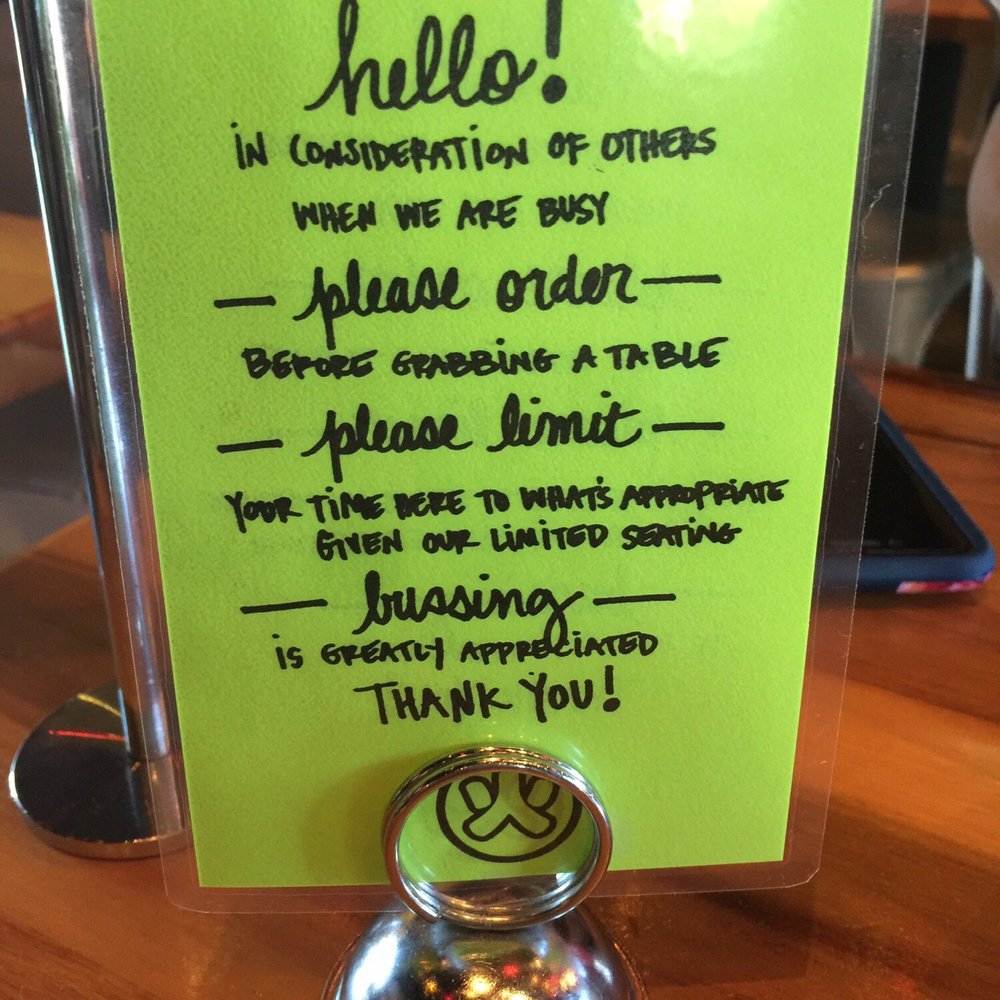 hello!
in CONSIDERATION OF OTHERS
WHEN WE ARE BUSY
— please order —
BEFORE GRABBING A TABLE
— please limit —
YOUR TIME HERE TO WHAT'S APPROPRIATE
GIVEN OUR LIMITED SEATING
— bussing —
is GREATLY APPRECIATED
THANK YOU!